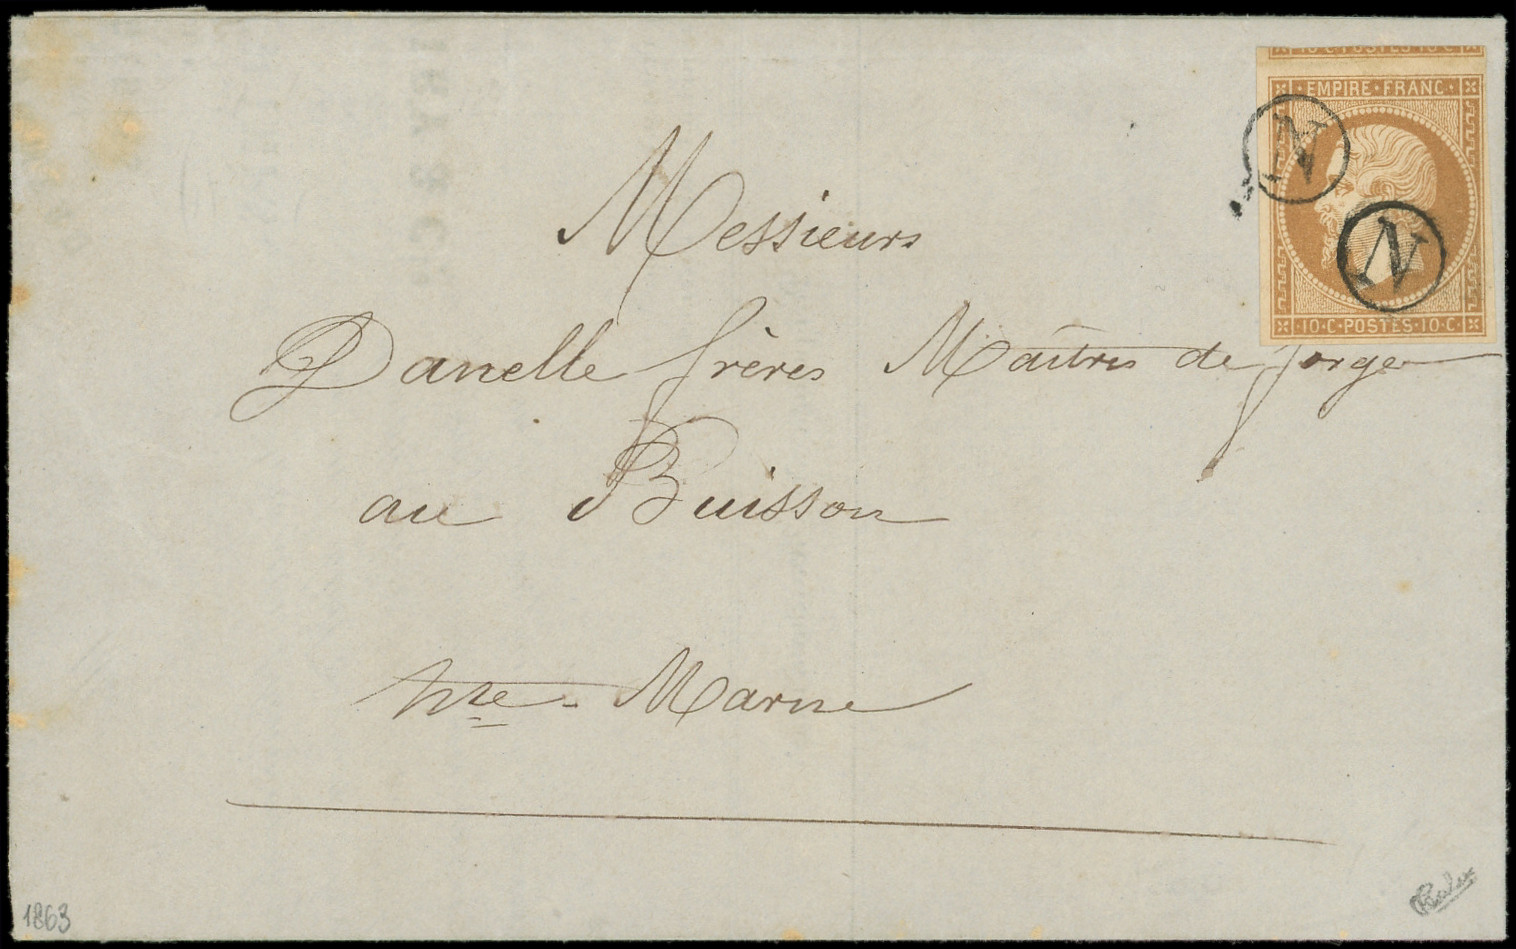 10·C·POSTES·10·C
EMPIRE·FRANC·
N
N
10·C·POSTES·10·C
Messieurs
Danelle frères Maîtres de forge
au Buisson
hte. Marne
1863